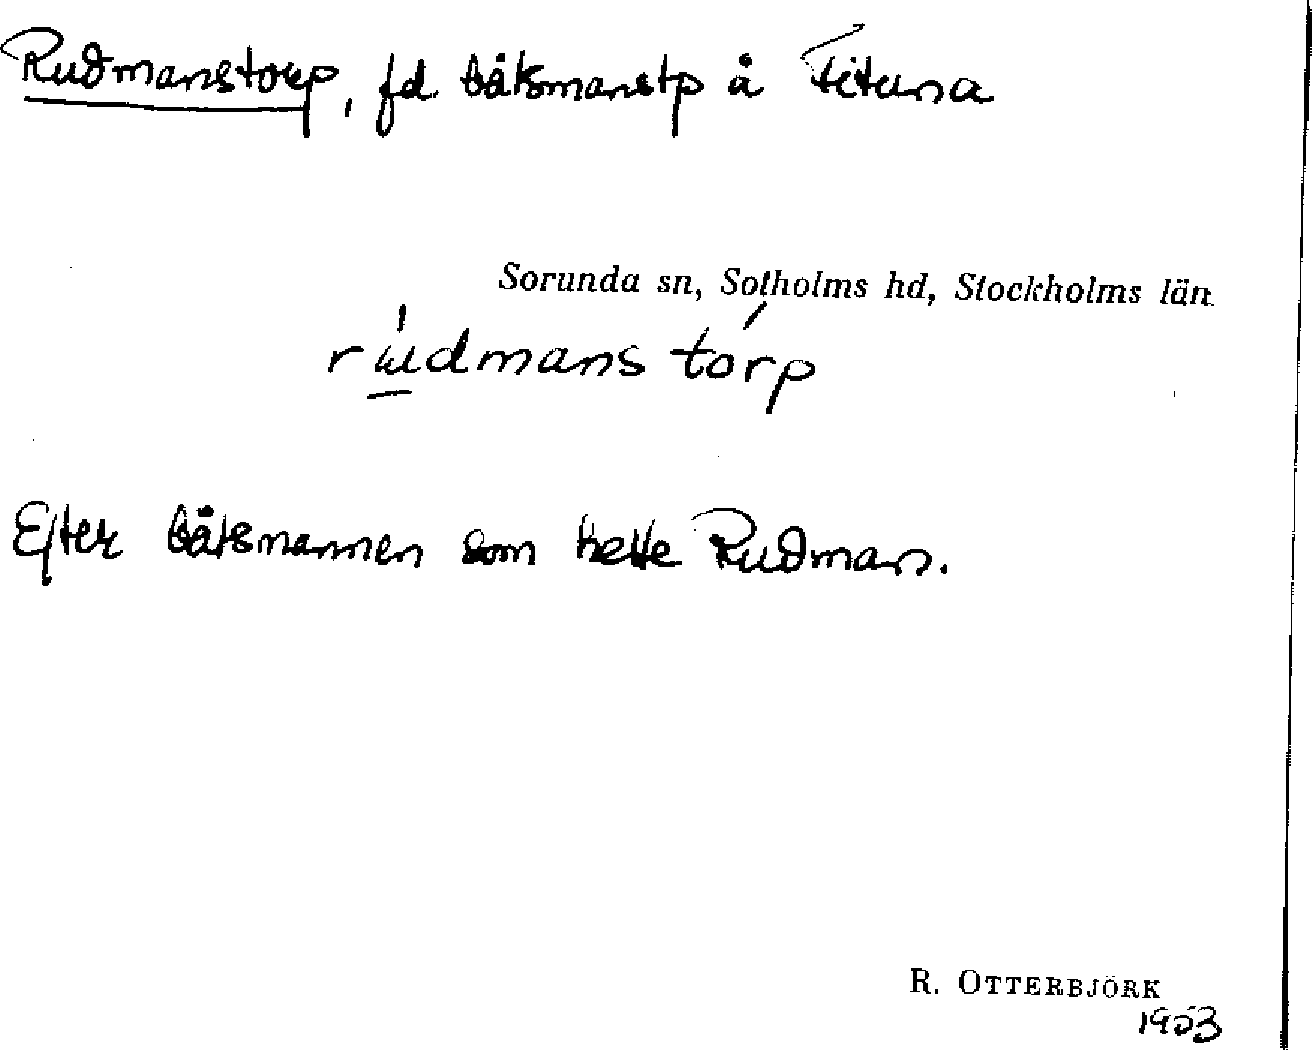 Rudmanstorp, fd båtsmanstp å Fituna
Sorunda sn, Sotholms hd, Stockholms län
rudmans torp
Efter båtsmannen som hette Rudman.
R. OTTERBJÖRK
1953